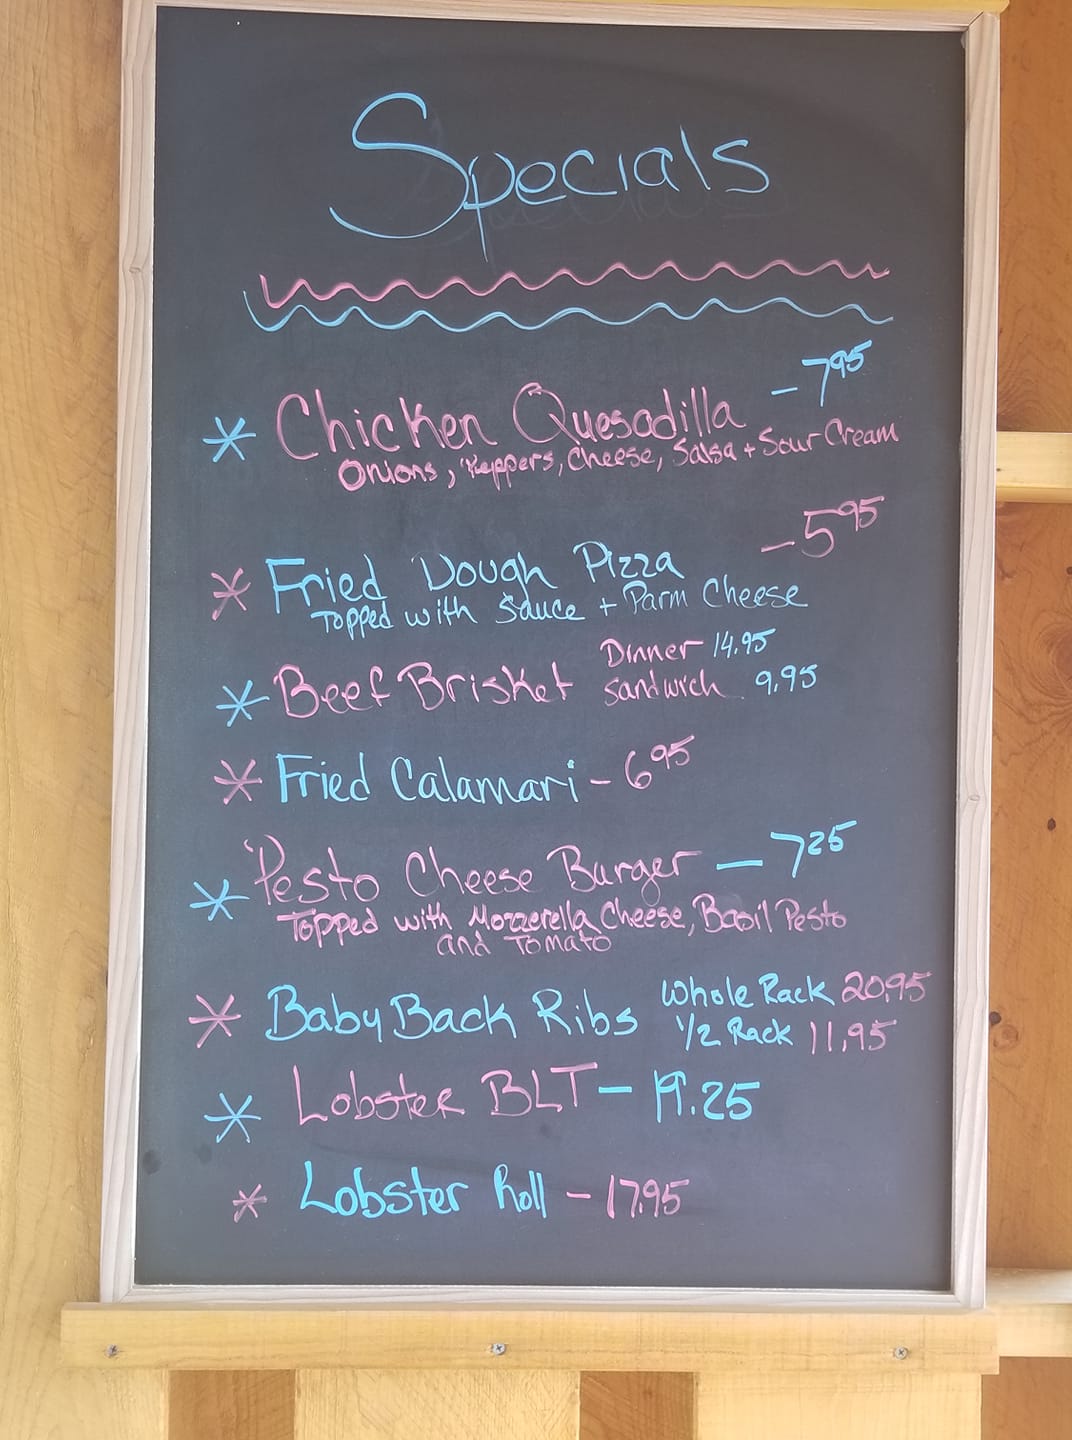 Specials
* Chicken Quesadilla - 7.95
Onions, Peppers, Cheese, Salsa + Sour Cream
* Fried Dough Pizza - 5.95
Topped with Sauce + Parm Cheese
* Beef Brisket Dinner 14.95
Sandwich 9.95
* Fried Calamari - 6.95
* Pesto Cheese Burger - 7.25
Topped with Mozzerella Cheese, Basil Pesto
and Tomato
* Baby Back Ribs Whole Rack 20.95
1/2 Rack 11.95
* Lobster BLT - 19.25
* Lobster Roll - 17.95